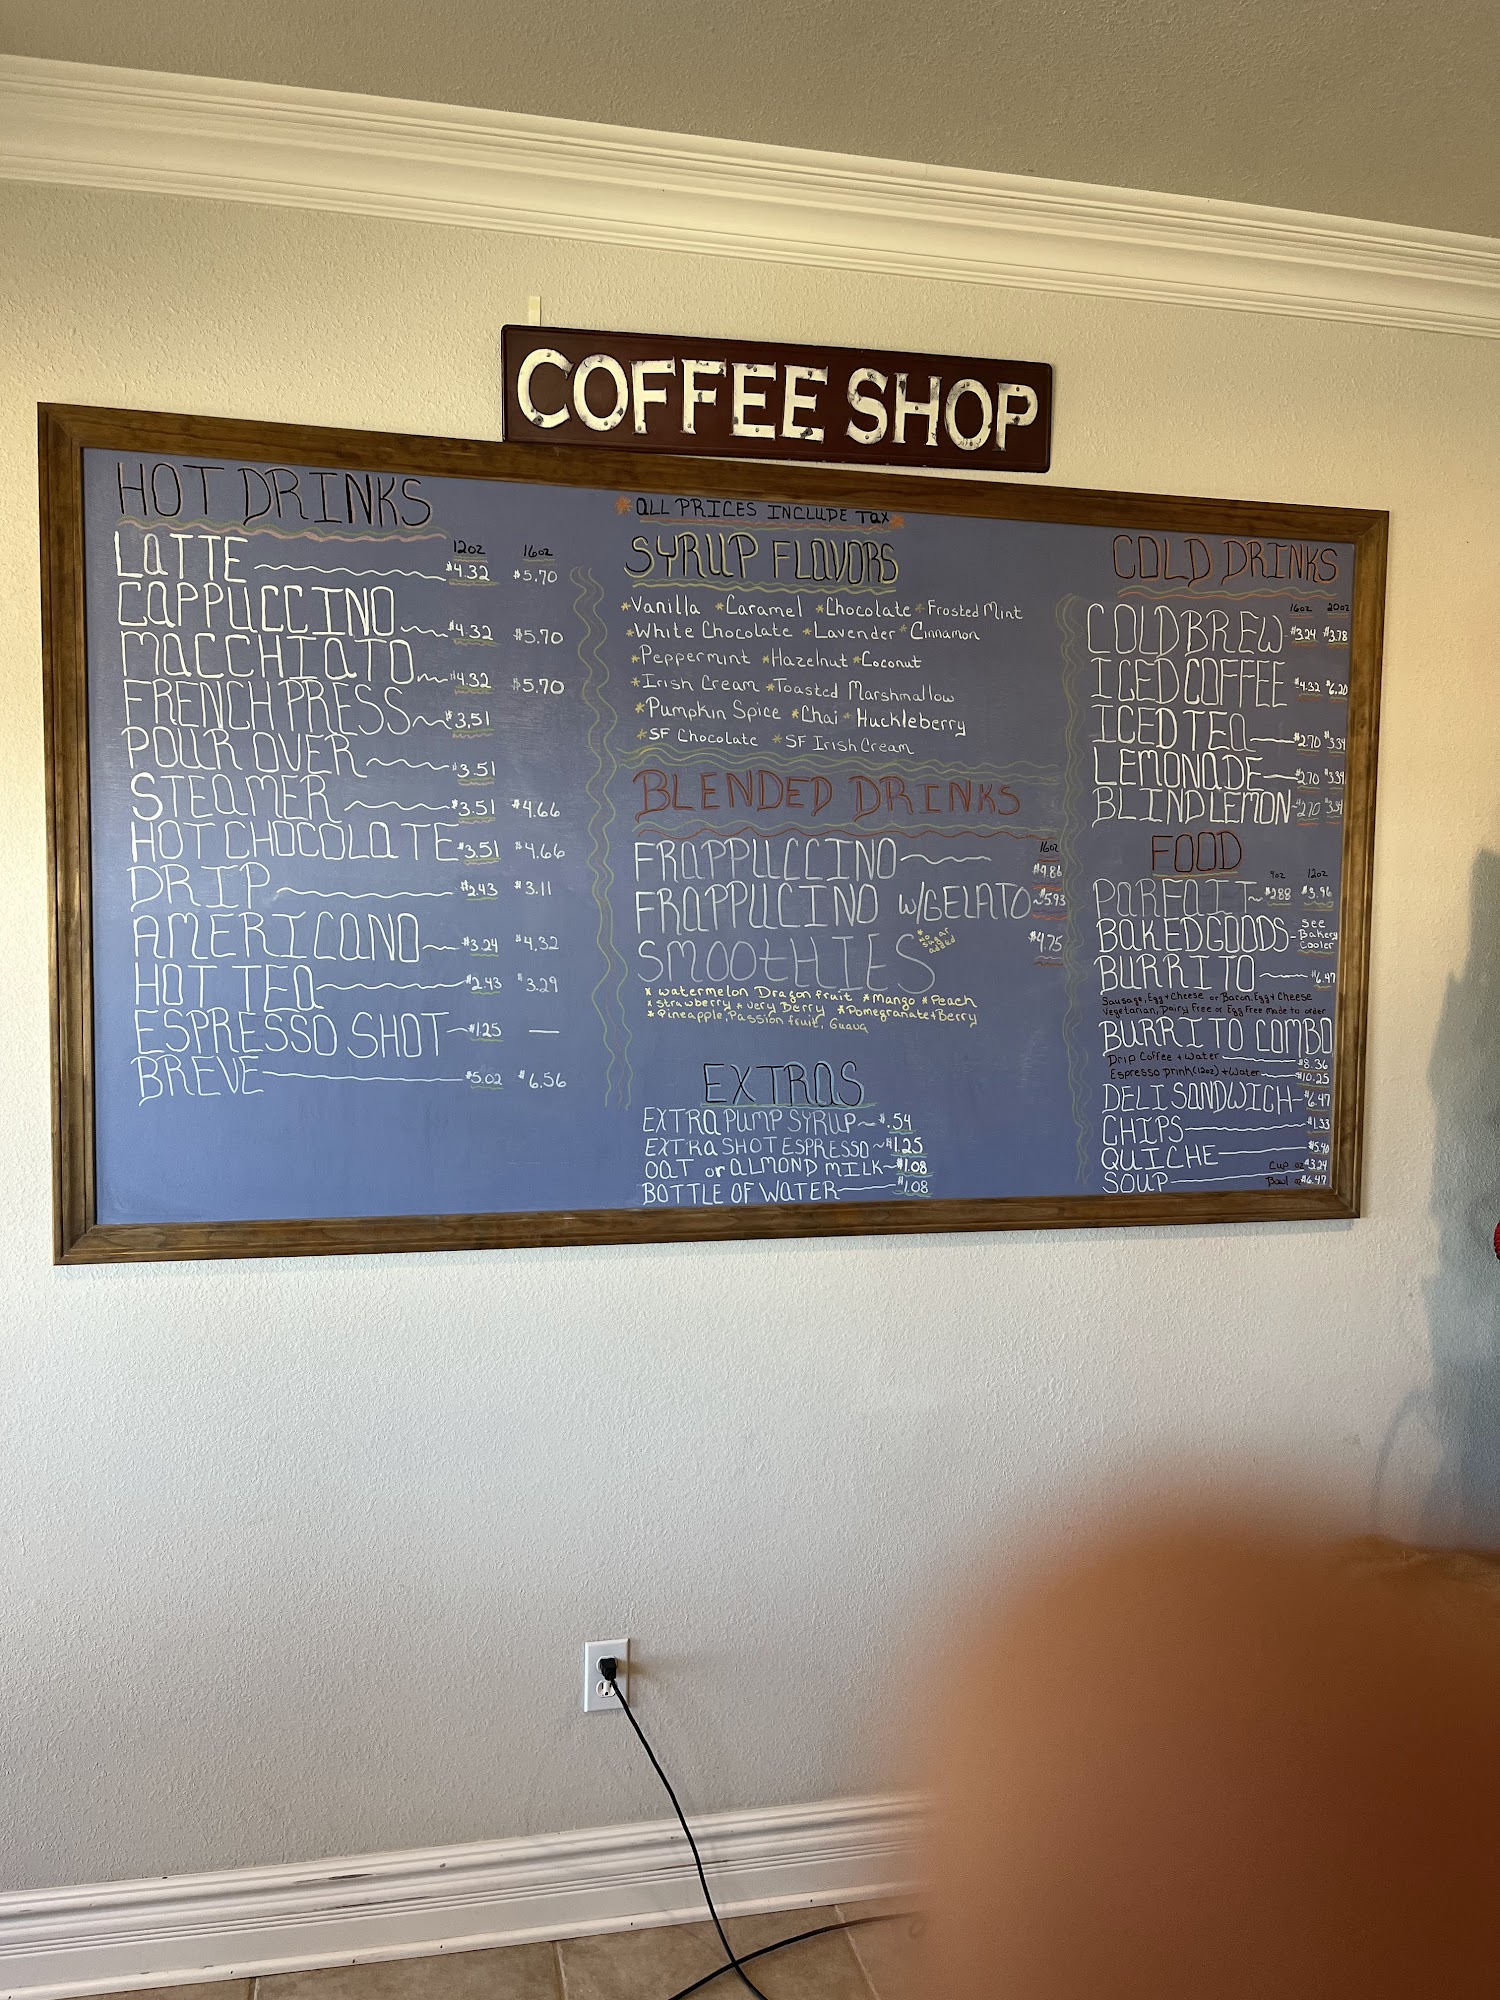 COFFEE SHOP
HOT DRINKS
12oz 16oz
LATTE $4.32 $5.70
CAPPUCCINO $4.32 $5.70
MACCHIATO $4.32 $5.70
FRENCH PRESS $3.51
POUR OVER $3.51
STEAMER $3.51 $4.66
HOT CHOCOLATE $3.51 $4.66
DRIP $2.43 $3.11
AMERICANO $3.24 $4.32
HOT TEA $2.43 $3.29
ESPRESSO SHOT $1.25 —
BREVE $5.02 $6.56
*ALL PRICES INCLUDE TAX*
SYRUP FLAVORS
*Vanilla *Caramel *Chocolate *Frosted Mint
*White Chocolate *Lavender *Cinnamon
*Peppermint *Hazelnut *Coconut
*Irish Cream *Toasted Marshmallow
*Pumpkin Spice *Chai *Huckleberry
*SF Chocolate *SF Irish Cream
BLENDED DRINKS
16oz
FRAPPUCCINO $4.86
FRAPPUCINO W/GELATO $5.93
SMOOTHIES *No sugar added $4.75
*Watermelon Dragon fruit *Mango *Peach
*Strawberry *Very Berry *Pomegranate+Berry
*Pineapple, Passion fruit, Guava
EXTRAS
EXTRA PUMP SYRUP $.54
EXTRA SHOT ESPRESSO $1.25
OAT or ALMOND MILK $1.08
BOTTLE OF WATER $1.08
COLD DRINKS
16oz 20oz
COLD BREW $3.24 $3.78
ICED COFFEE $4.32 $6.20
ICED TEA $2.70 $3.34
LEMONADE $2.70 $3.34
BLIND LEMON $2.70 $3.34
FOOD
9oz 12oz
PARFAIT $2.88 $3.96
BAKED GOODS See Bakery Cooler
BURRITO $6.47
Sausage, Egg + Cheese or Bacon, Egg + Cheese
Vegetarian, Dairy Free or Egg Free made to order
BURRITO COMBO
Drip Coffee + Water $8.36
Espresso Drink (12oz) + Water $10.25
DELI SANDWICH $6.47
CHIPS $1.33
QUICHE $5.40
SOUP Cup $3.24
Bowl $6.47